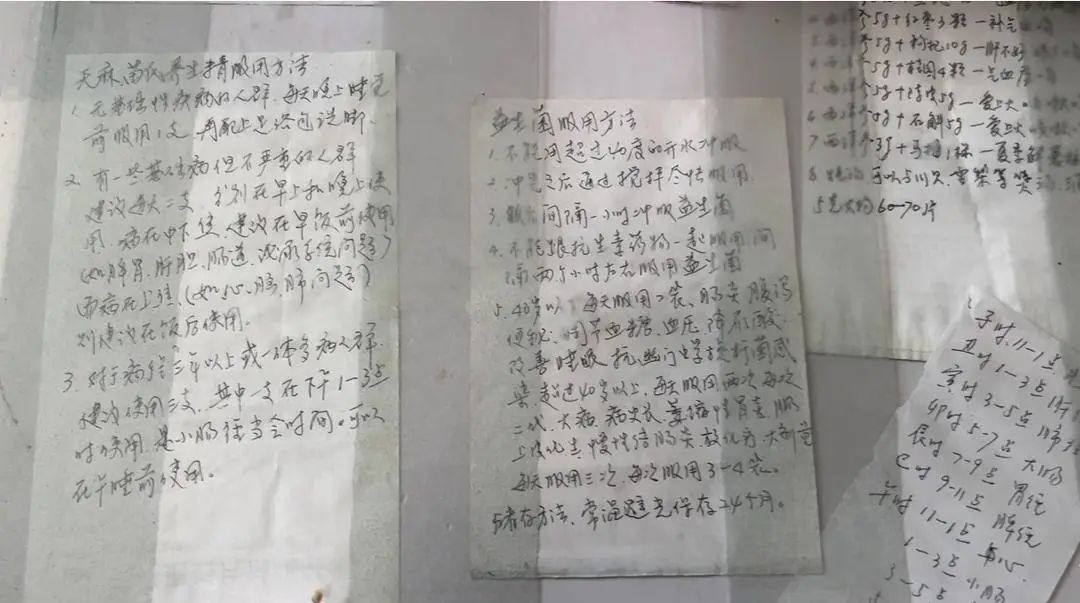 天麻苗氏养生膏服用方法
1. 无基础性疾病的人群,每天晚上睡觉
前服用1支,再配上足浴包洗脚.
2. 有一些基础病但不严重的人群
建议每天二支,分别在早上和晚上使
用.病在中下焦,建议在早饭前使用
(如脾胃.肝胆.肠道,泌尿系统问题)
而病在上焦(如心.脑.肺问题)
则建议在饭后使用.
3. 对于病龄三年以上或一体多病人群.
建议使用三支,其中一支在下午1-3点
时使用,是小肠经当令时间.可以
在午睡前使用。
益生菌服用方法
1.不能用超过40度的开水冲服
2.冲完之后通过搅拌尽快服用.
3. 间隔一小时冲服益生菌
4. 不能跟抗生素药物一起服用间
隔两个小时左右服用益生菌
5. 40岁以下每天服用2袋、肠炎腹泻
便秘.调节血糖.血压.降尿酸.
改善睡眠.抗幽门螺旋杆菌感
染.超过40岁以上,每天服用两次每次
二代.大病.病史长.萎缩性胃炎.肠
上皮化生.慢性结肠炎放化疗
每天服用三次.每次服用3-4袋。
储存方法.常温避光保存24个月。
5g+红枣3颗一补气
参5g+枸杞10g一肝不好
参5g+桂圆4颗一气血虚
5g+陈皮5g一
6 西洋参5g+石斛5g一
7 西洋参3g+
8 可以与川贝,雪梨等煲汤
5克大约60-70片
子时 11-1点
丑时 1-3点 肝
寅时 3-5点 肺
卯时 5-7点 大肠
辰时 7-9点 胃经
巳时 9-11点 脾经
午时 11-1点 心
1-3点 小肠
3-5点